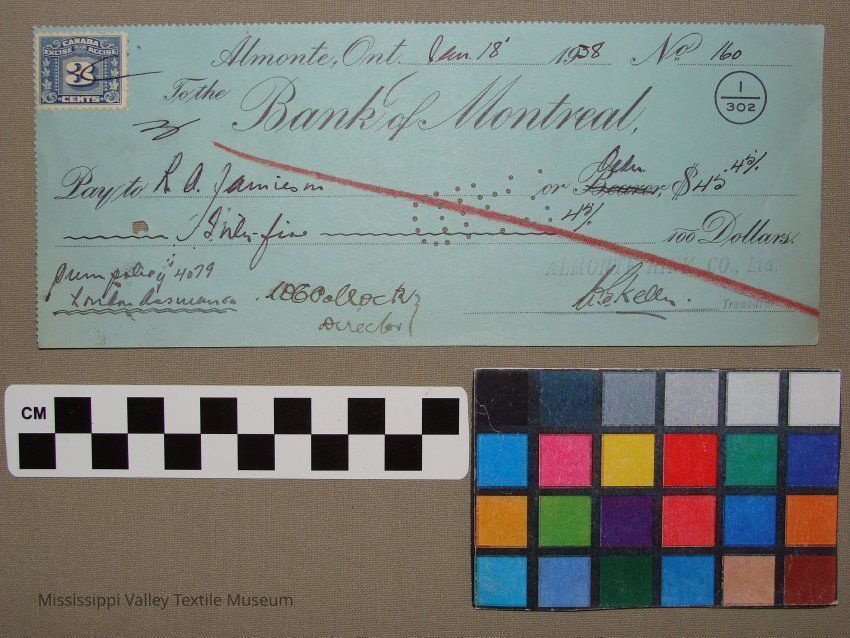 CANADA
EXCISE ACCISE
3
CENTS
Almonte, Ont. Jan. 18 1938 No 160
To the Bank of Montreal,
1
302
Pay to R. A. Jamieson or Bearer, $45 45/
45/
100 Dollars.
4079
ALMONTE RINK CO., Ltd.
Pollock
Director
Treasurer
CM
Mississippi Valley Textile Museum